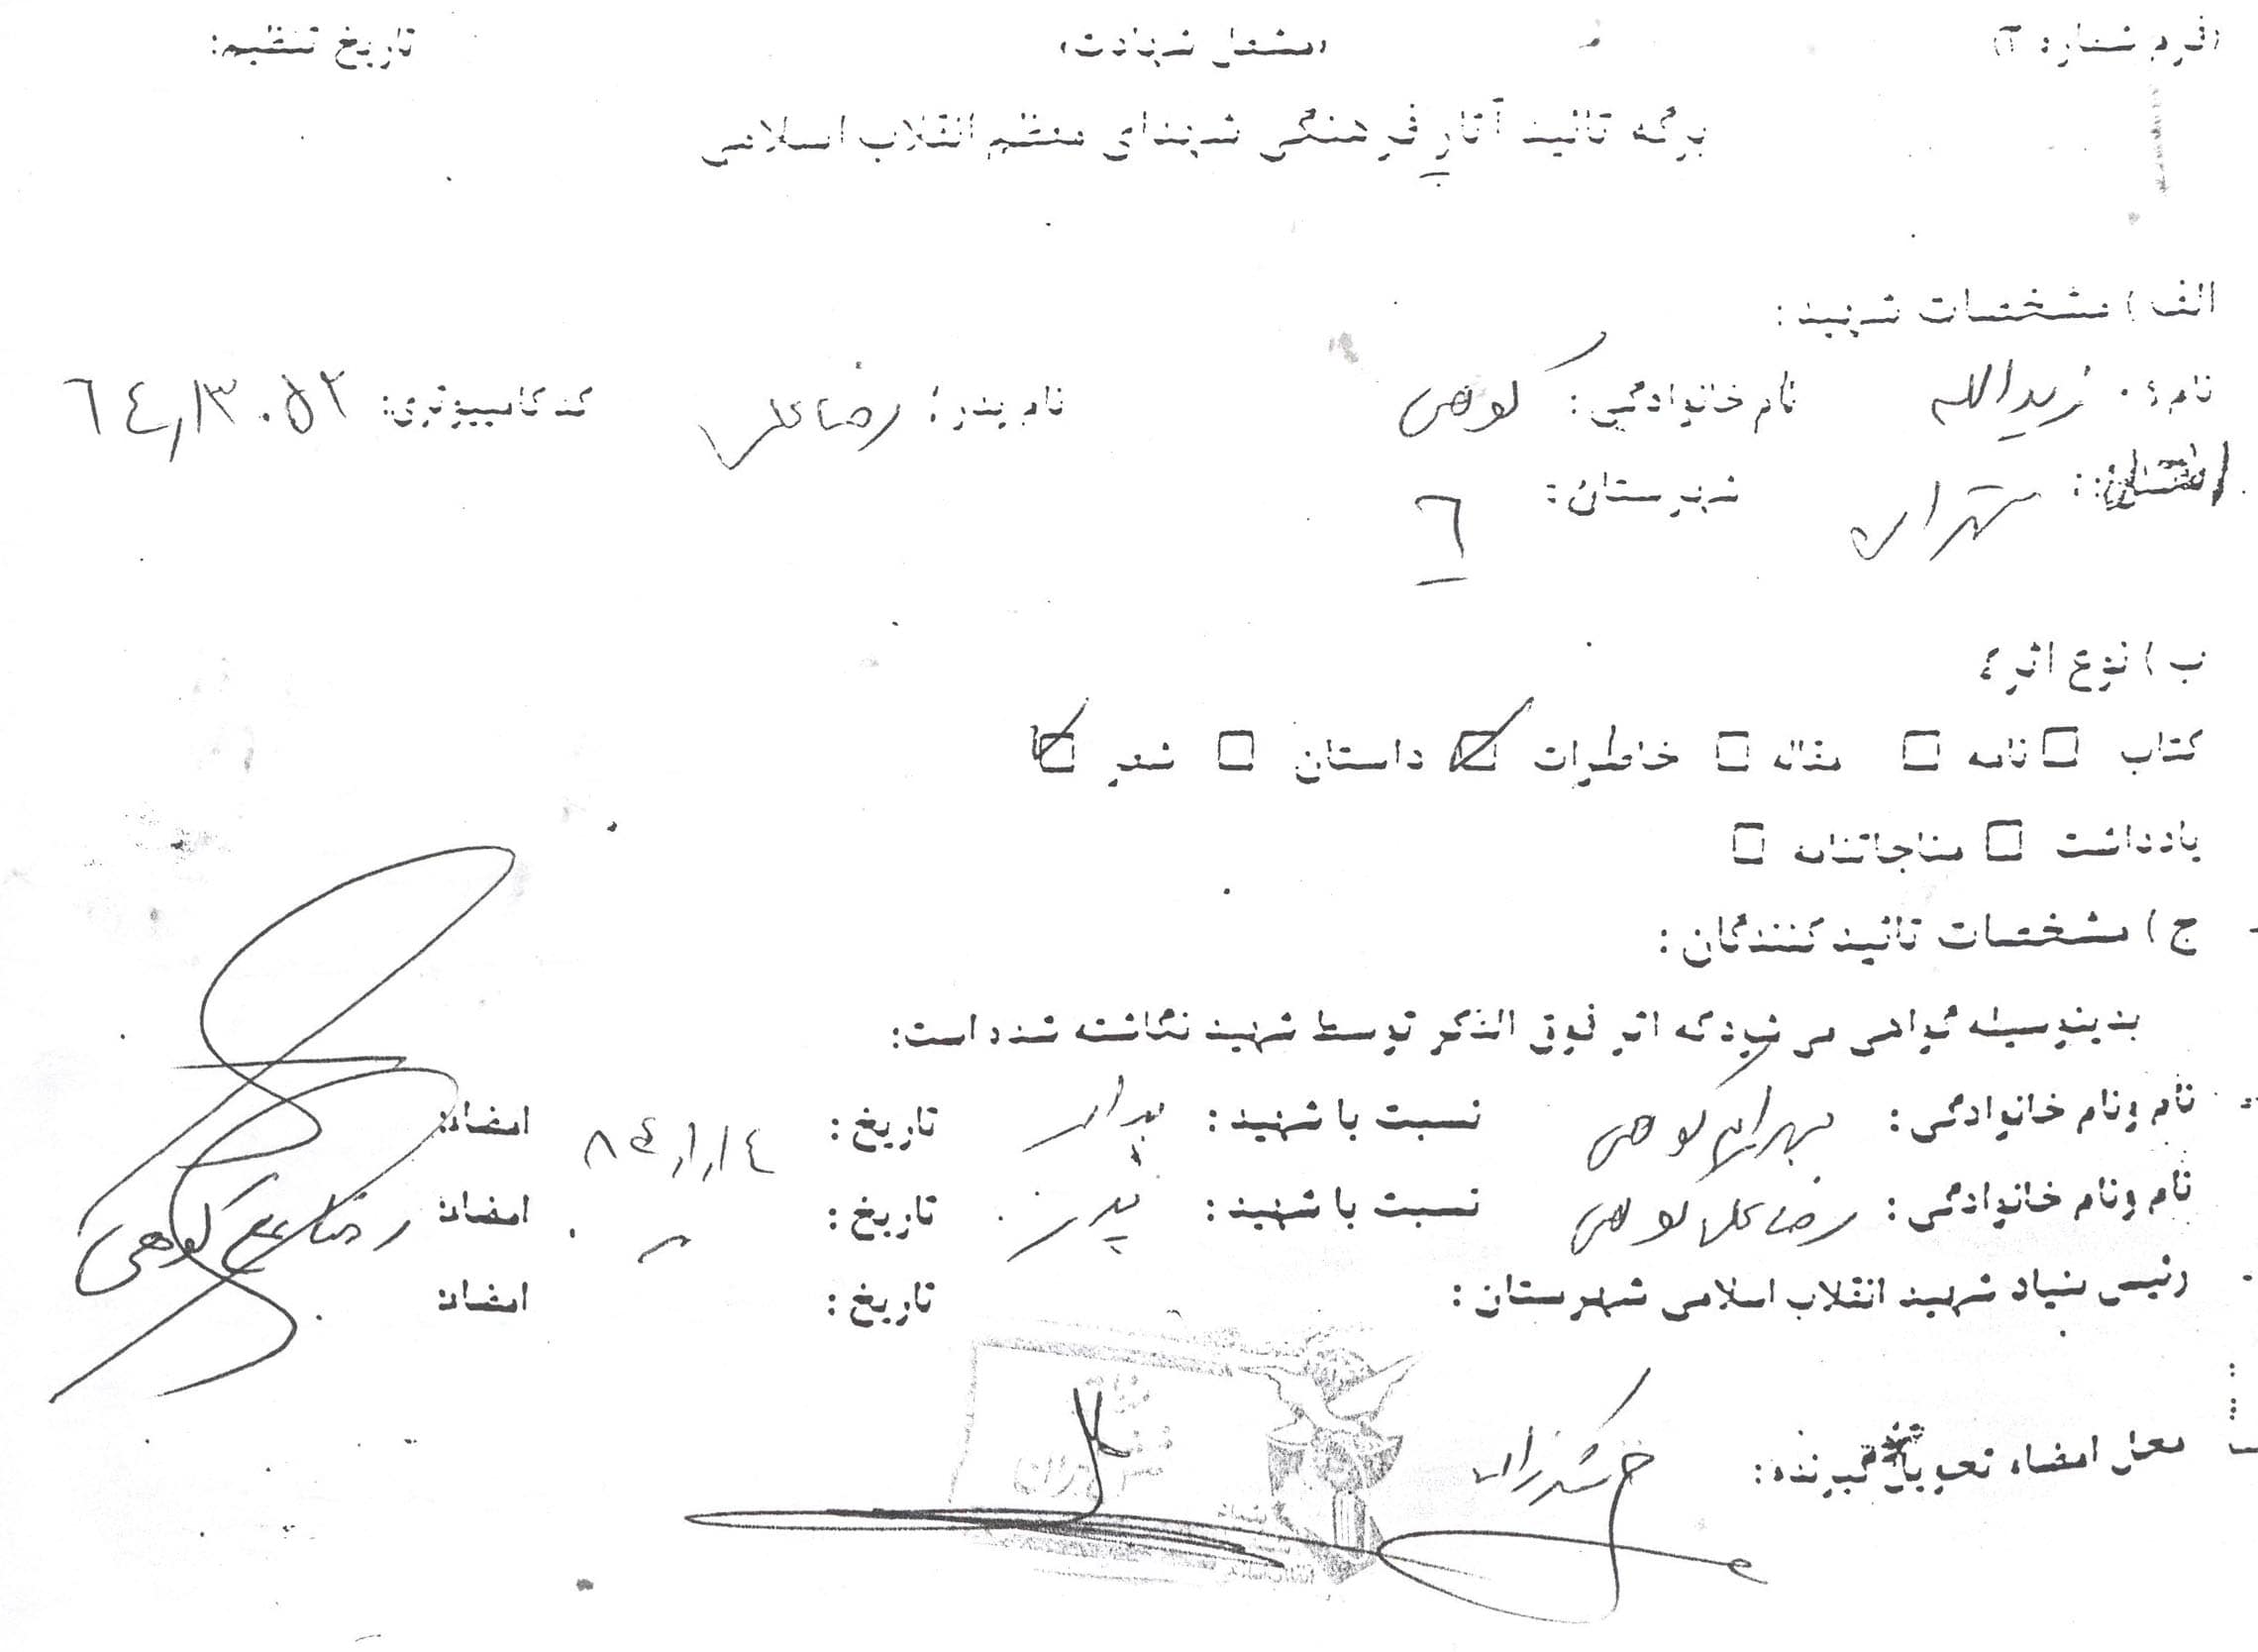 (فرم شماره ۳) «مشعل شهادت» تاریخ تنظیم:
برگه تائید آثار فرهنگی شهدای معظم انقلاب اسلامی
الف) مشخصات شهید:
نام: زیداله نام خانوادگی: کوهی نام پدر: رضاعلی کد کامپیوتری: ٦٤١٣٠٥٢
استان: تهران شهرستان: ٦
ب) نوع اثر:
کتاب □ نامه □ مقاله □ خاطرات ☑ داستان □ شعر ☑
یادداشت □ مناجاتنامه □
ج) مشخصات تائید کنندگان:
بدینوسیله گواهی می شود که اثر فوق الذکر توسط شهید نگاشته شده است:
نام ونام خانوادگی: بهرام کوهی نسبت با شهید: تاریخ: امضاء:
نام ونام خانوادگی: رضاعلی کوهی نسبت با شهید: پدر تاریخ: امضاء: رضا علی کوهی
رئیس بنیاد شهید انقلاب اسلامی شهرستان: تاریخ: امضاء:
محل امضاء تحویل گیرنده: